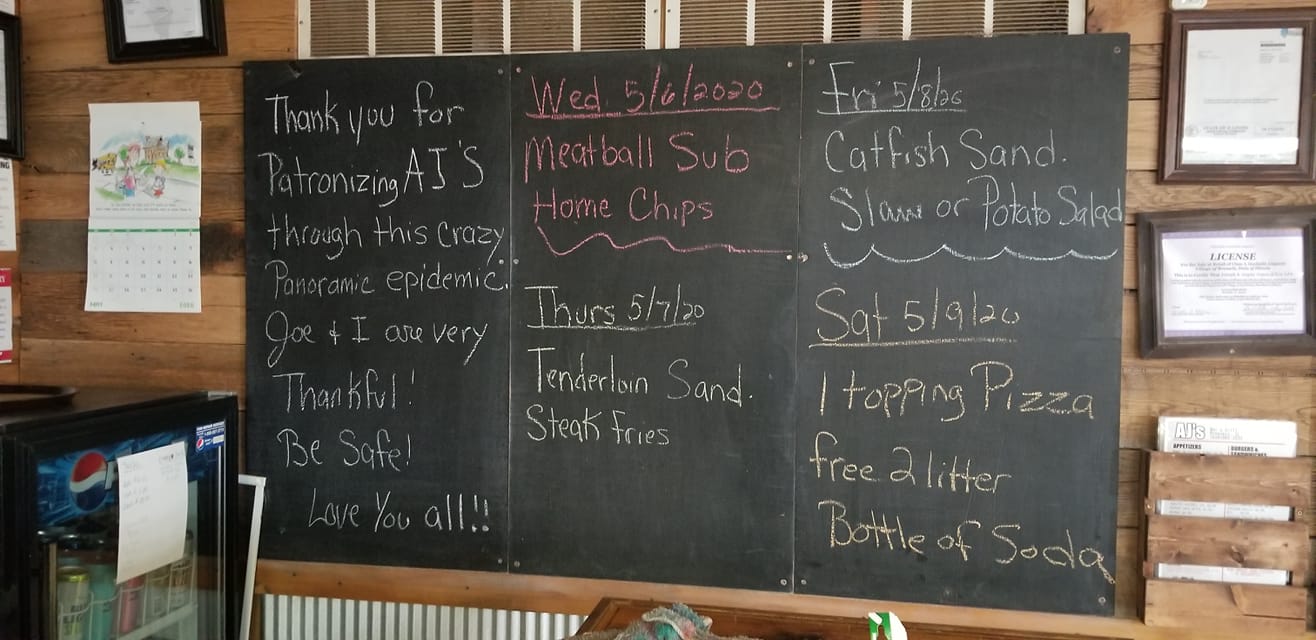 Thank you for
Patronizing AJ'S
through this crazy
Panoramic epidemic.
Joe & I are very
Thankful!
Be Safe!
Love You all!!
Wed. 5/6/2020
Meatball Sub
Home Chips
Thurs 5/7/20
Tenderloin Sand.
Steak Fries
Fri 5/8/20
Catfish Sand.
Slaw or Potato Salad
Sat 5/9/20
1 topping Pizza
free 2 litter
Bottle of Soda
LICENSE
AJ's
APPETIZERS
BURGERS &
SANDWICHES